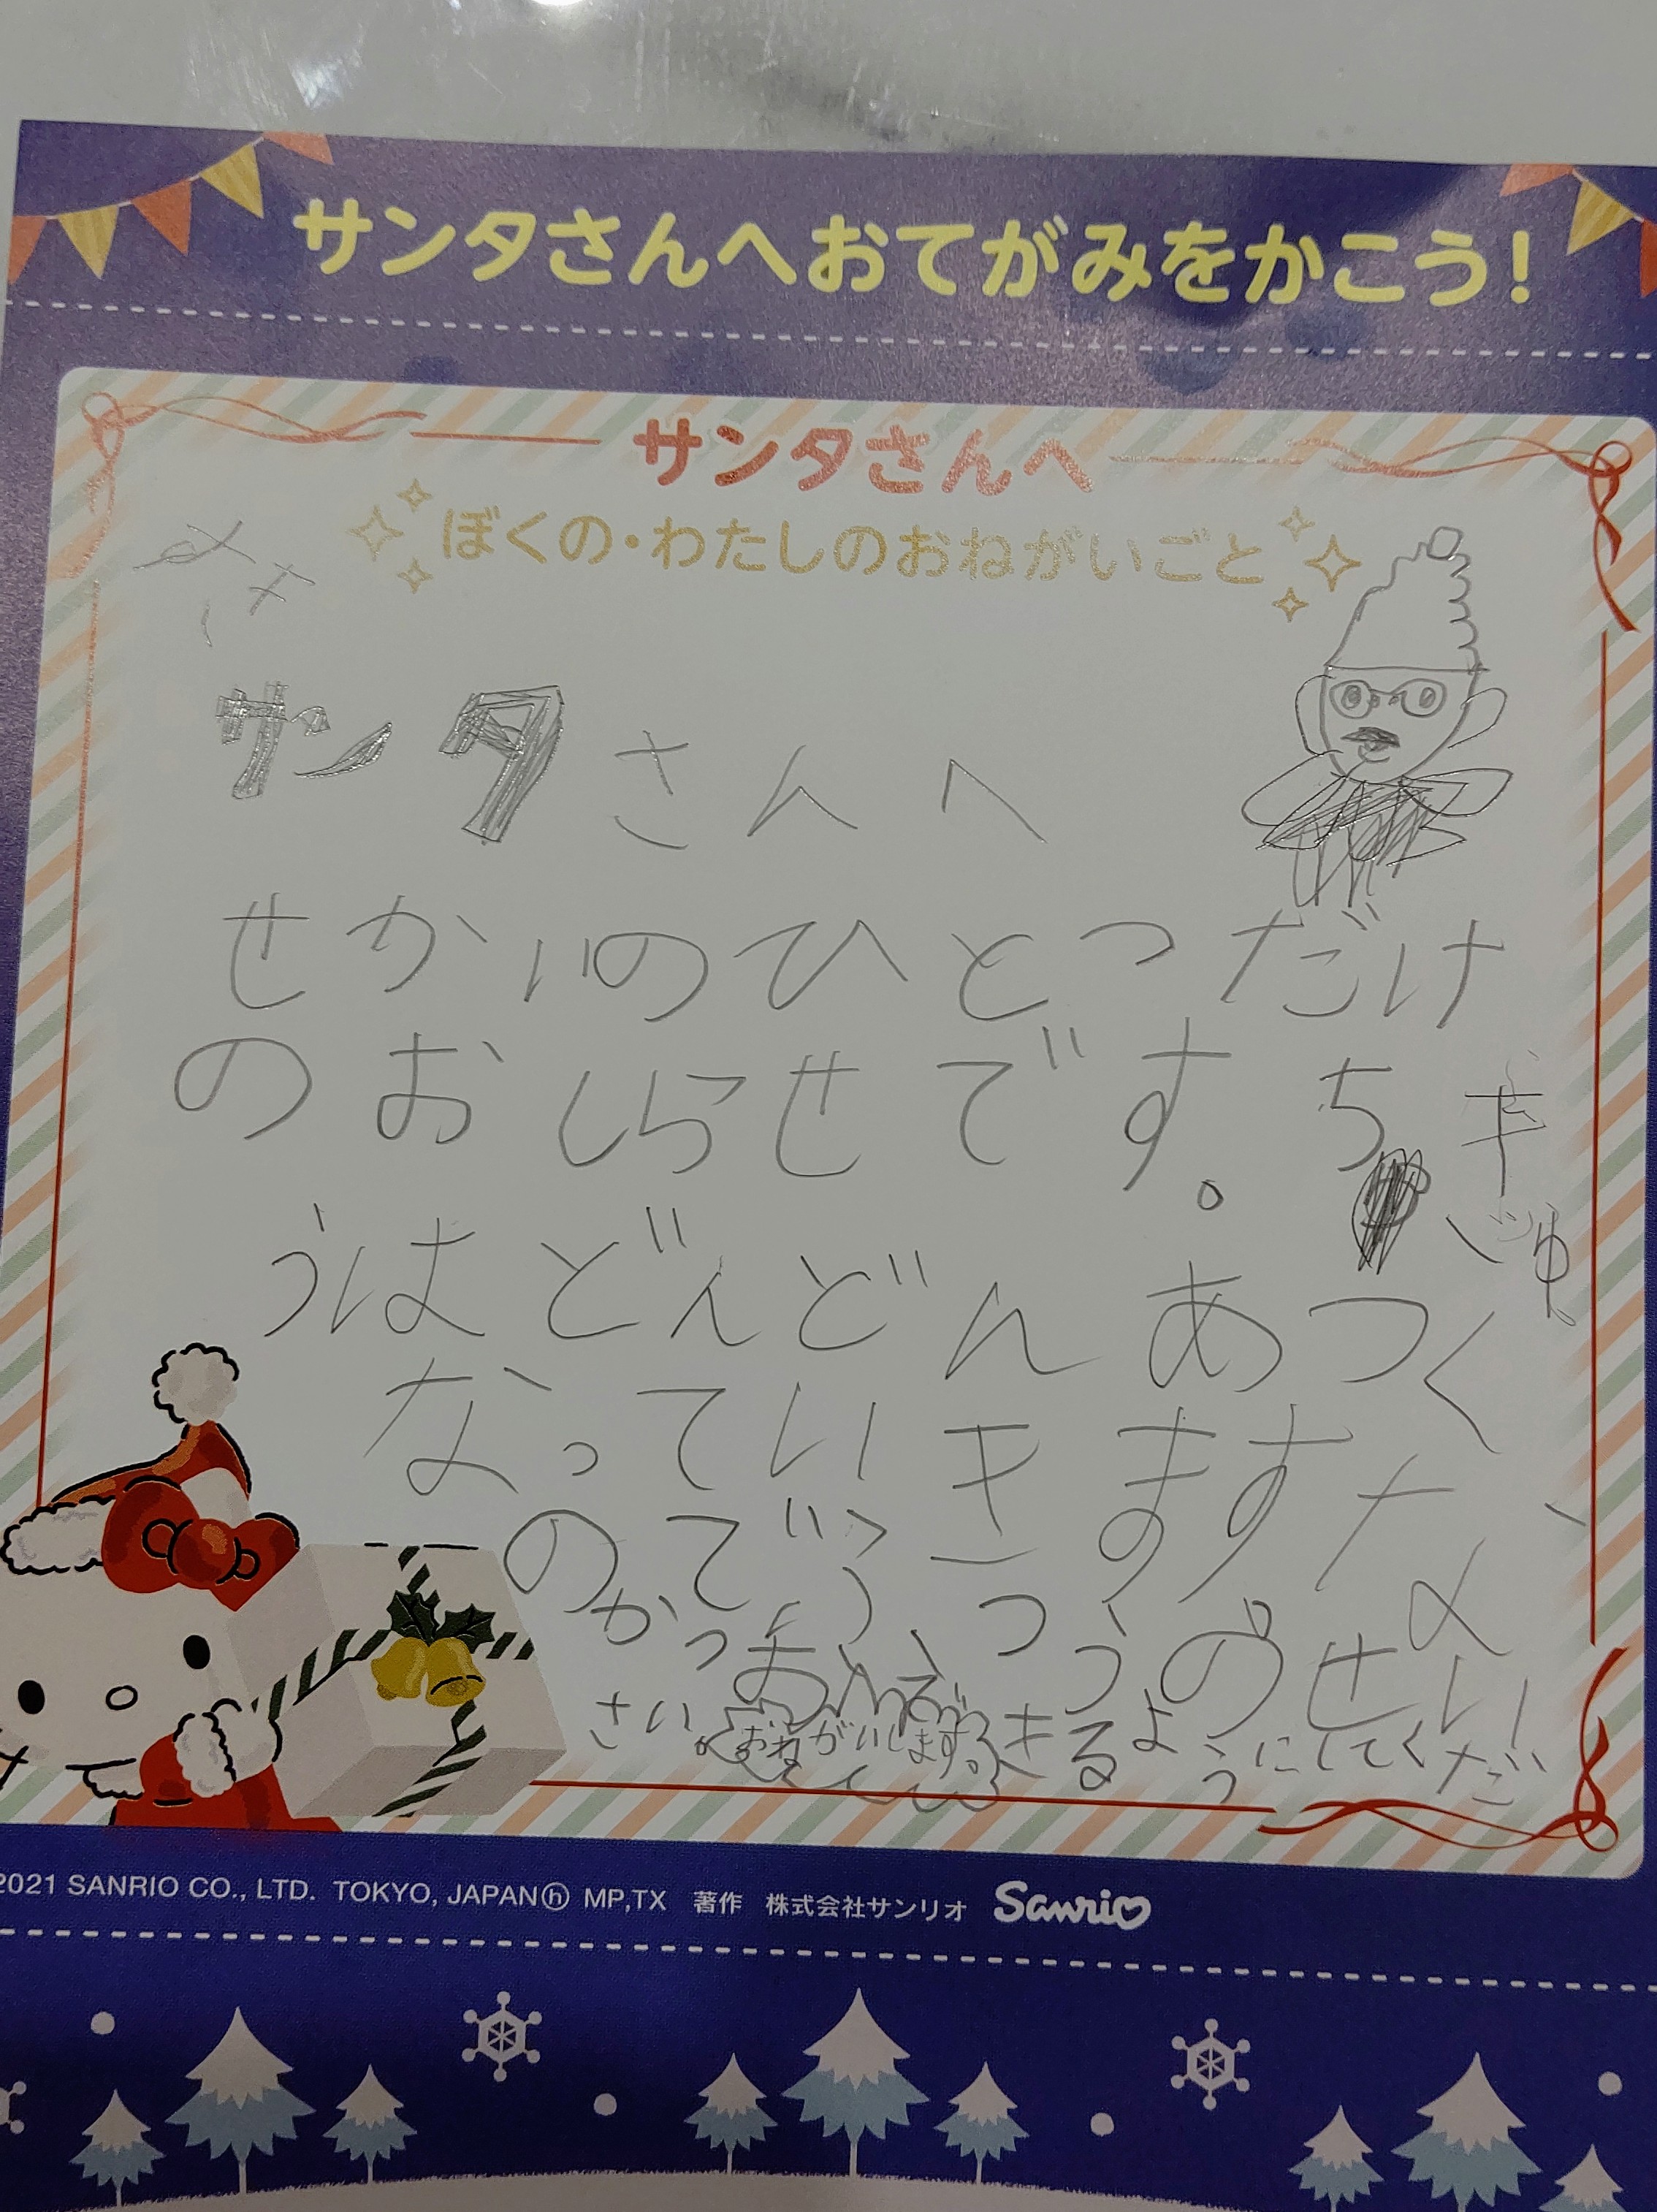 サンタさんへおてがみをかこう!
サンタさんへ
ぼくの・わたしのおねがいごと
サンタさんへ
せかいのひとつだけ
のおしらせです。ちきゅ
うはどんどんあつく
なっていきますな
ので
せい
かつ
きるようにしてくだ
さい。おねがいします。
2021 SANRIO CO., LTD. TOKYO, JAPAN ⓗ MP,TX 著作 株式会社サンリオ Sanrio